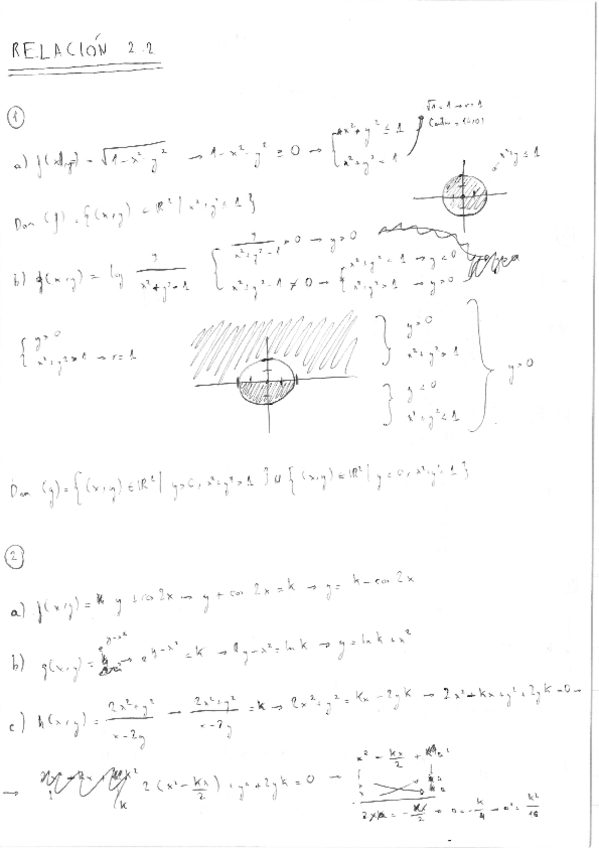 RELACIÓN 2.2
①
a) f(x,y) = √1-x²-y² → 1-x²-y² ≥ 0 → { x²+y² ≤ 1
x²+y² = 1
x²+y² ≤ 1
Dom (f) = {(x,y) ∈ ℝ² | x²+y² ≤ 1}
b) g(x,y) = log y/(x²+y²-1) { y/(x²+y²-1) > 0 → y > 0
x²+y²-1 ≠ 0 → { x²+y² < 1 → y < 0
x²+y² > 1 → y > 0
{ y > 0
x²+y² > 1 → r = 1
} y > 0
x²+y² > 1
} y < 0
x²+y² < 1
} y > 0
Dom (g) = {(x,y) ∈ ℝ² | y > 0, x²+y² > 1} ∪ {(x,y) ∈ ℝ² | y < 0, x²+y² < 1}
②
a) f(x,y) = y + cos 2x → y + cos 2x = k → y = k - cos 2x
b) g(x,y) = e^(y-x²) → e^(y-x²) = k → y-x² = ln k → y = ln k + x²
c) h(x,y) = (2x²+y²)/(x-2y) → (2x²+y²)/(x-2y) = k → 2x²+y² = kx - 2yk → 2x²+kx+y²+2yk = 0 →
→ 2(x² - kx/2) + y² + 2yk = 0 →
x² - kx/2 + a²
2xa = -kx/2 → a = -k/4 → a² = k²/16